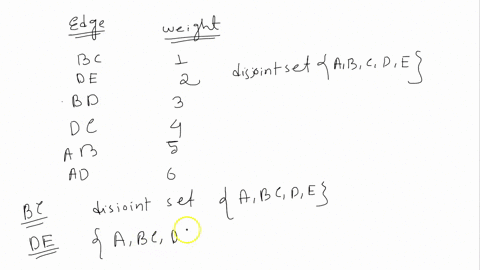 Edge weight
BC 1
DE 2 disjoint set {A,B,C,D,E}
BD 3
DC 4
AB 5
AD 6
BC disjoint set {A,BC,D,E}
DE {A,BC,D